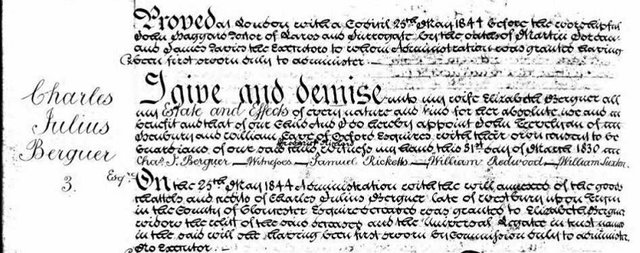 Proved at London with a Codicil 25th May 1844 before the worshipful
John Daggard Doctor of Laws and Surrogate by the oaths of Martin
and James Davis the Executors to whom Administration was granted having
been first sworn duly to administer
Charles
Julius
Berguer
Esqre
3.
I give and demise unto my wife Elizabeth Berguer all
my Estate and Effects of every nature and kind for her absolute use and
benefit and that of our Children I do hereby appoint John of
Westbury and William of Oxford Esquires with their own money to be
Guardians of our said Witness my hand this 31st day of March 1830
Chas J. Berguer Witnesses Samuel Ricketts William Redwood William Sexton
On the 25th May 1844 Administration with the will annexed of the goods
chattels and credits of Charles Julius Berguer late of Westbury upon
in the County of Gloucester Esquire deceased was granted to Elizabeth Berguer
widow the relict of the said deceased and the Universal Legatee in trust named
in the said will she having been first sworn by Commission duly to administer
No Executor